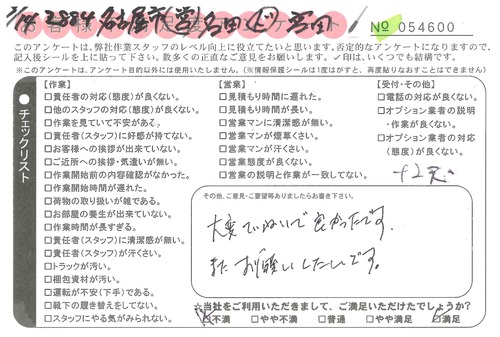 3/14 2884 名古屋市営
お客様満足度アンケート
№ 054600
このアンケートは、弊社作業スタッフのレベル向上に役立てたいと思います。否定的なアンケートになりますので、
記入後シールを上に貼って下さい。数多くの正直なご意見をお願いします。✓印は、いくつでも結構です。
※このアンケートは、アンケート目的以外には使用いたしません。(※情報保護シールは1度はがすと、再度貼りなおすことはできません)
チェックリスト
【作業】
□責任者の対応(態度)が良くない。
□他のスタッフの対応(態度)が良くない。
□作業を見ていて不安がある。
□責任者(スタッフ)に好感が持てない。
□お客様への挨拶が出来ていない。
□ご近所への挨拶・気遣いが無い。
□作業開始前の内容確認がなかった。
□作業開始時間が遅れた。
□荷物の取り扱いが雑である。
□お部屋の養生が出来ていない。
□作業時間が長すぎる。
□責任者(スタッフ)に清潔感が無い。
□責任者(スタッフ)が汗くさい。
□トラックが汚い。
□梱包資材が汚い。
□運転が不安(下手)である。
□靴下の履き替えをしてない。
□スタッフにやる気がみられない。
【営業】
□見積もり時間に遅れた。
□見積もり時間が長い。
□営業マンに清潔感が無い。
□営業マンが煙草くさい。
□営業マンが汗くさい。
□営業態度が良くない。
□営業の説明と作業が一致してない。
【受付・その他】
□電話の対応が良くない。
□オプション業者の説明
・作業が良くない。
□オプション業者の対応
(態度)が良くない。
その他、ご意見・ご要望等ありましたらお書き下さい。
大変ていねいで良かったです。
またお願いしたいです。
☆当社をご利用いただきまして、ご満足いただけたでしょうか?
□不満 □やや不満 □普通 □やや満足 □満足